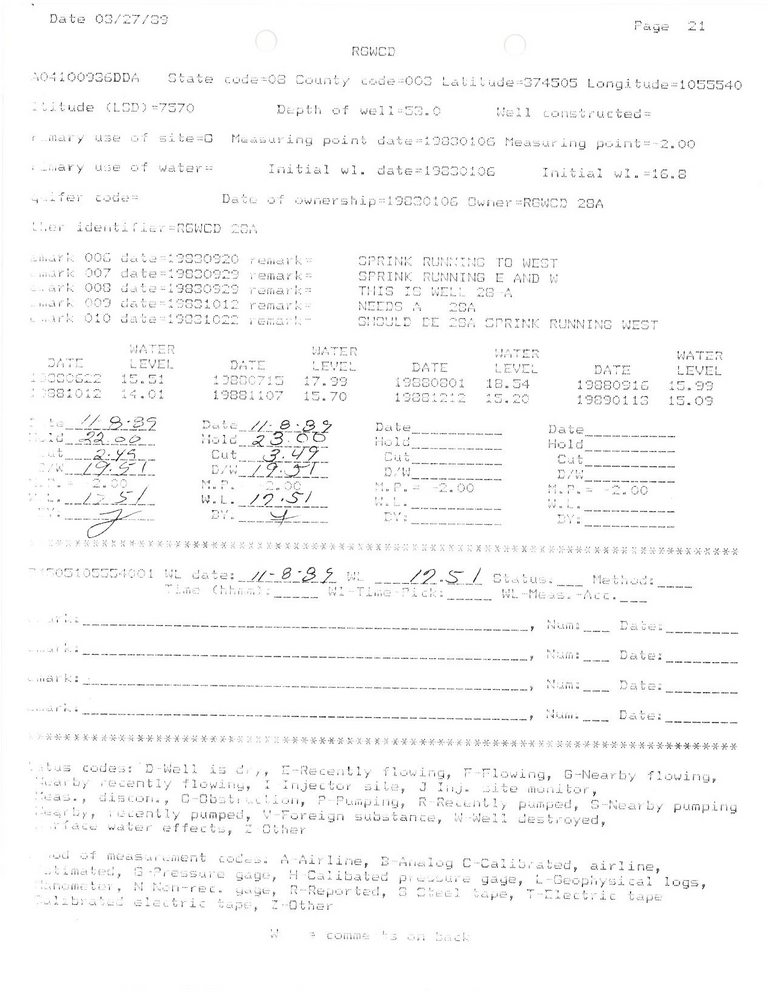 Date 03/27/89
Page 21
RGWCD
A04100936DDA State code=08 County code=003 Latitude=374505 Longitude=1055540
ltitude (LSD)=7570 Depth of well=53.0 Well constructed=
rimary use of site=O Measuring point date=19880106 Measuring point=-2.00
rimary use of water= Initial wl. date=19880106 Initial wl.=16.8
quifer code= Date of ownership=19880106 Owner=RGWCD 28A
ther identifier=RGWCD 28A
emark 006 date=19880920 remark= SPRINK RUNNING TO WEST
emark 007 date=19880929 remark= SPRINK RUNNING E AND W
emark 008 date=19880929 remark= THIS IS WELL 28-A
emark 009 date=19881012 remark= NEEDS A 28A
emark 010 date=19881022 remark= SHOULD BE 28A SPRINK RUNNING WEST
WATER WATER WATER WATER
DATE LEVEL DATE LEVEL DATE LEVEL DATE LEVEL
19880622 15.51 19880715 17.99 19880801 18.54 19880916 15.99
19881012 14.01 19881107 15.70 19881212 15.20 19890113 15.09
Date 11-8-89 Date 11-8-89 Date Date
Hold 22.00 Hold 23.00 Hold Hold
Cut 2.49 Cut 3.49 Cut Cut
D/W 19.51 D/W 19.51 D/W D/W
M.P.= -2.00 M.P.= -2.00 M.P.= -2.00 M.P.= -2.00
W.L. 17.51 W.L. 17.51 W.L. W.L.
BY: BY: BY: BY:
***********************************************************************
74505105554001 WL date: 11-8-89 WL 17.51 Status: Method:
Time (hhmm): Wl-Time-Pick: WL-Meas.-Acc.
mark: , Num: Date:
mark: , Num: Date:
mark: , Num: Date:
mark: , Num: Date:
***********************************************************************
tatus codes: D-Well is dry, E-Recently flowing, F-Flowing, G-Nearby flowing,
Nearby recently flowing, I Injector site, J Inj. site monitor,
Meas., discon., O-Obstruction, P-Pumping, R-Recently pumped, S-Nearby pumping
Nearby, recently pumped, V-Foreign substance, W-Well destroyed,
urface water effects, Z Other
hod of measurement codes: A-Airline, B-Analog C-Calibrated, airline,
stimated, G-Pressure gage, H-Calibated pressure gage, L-Geophysical logs,
Manometer, N Non-rec. gage, R-Reported, S Steel tape, T-Electric tape
Calibrated electric tape, Z-Other
W = comments on back